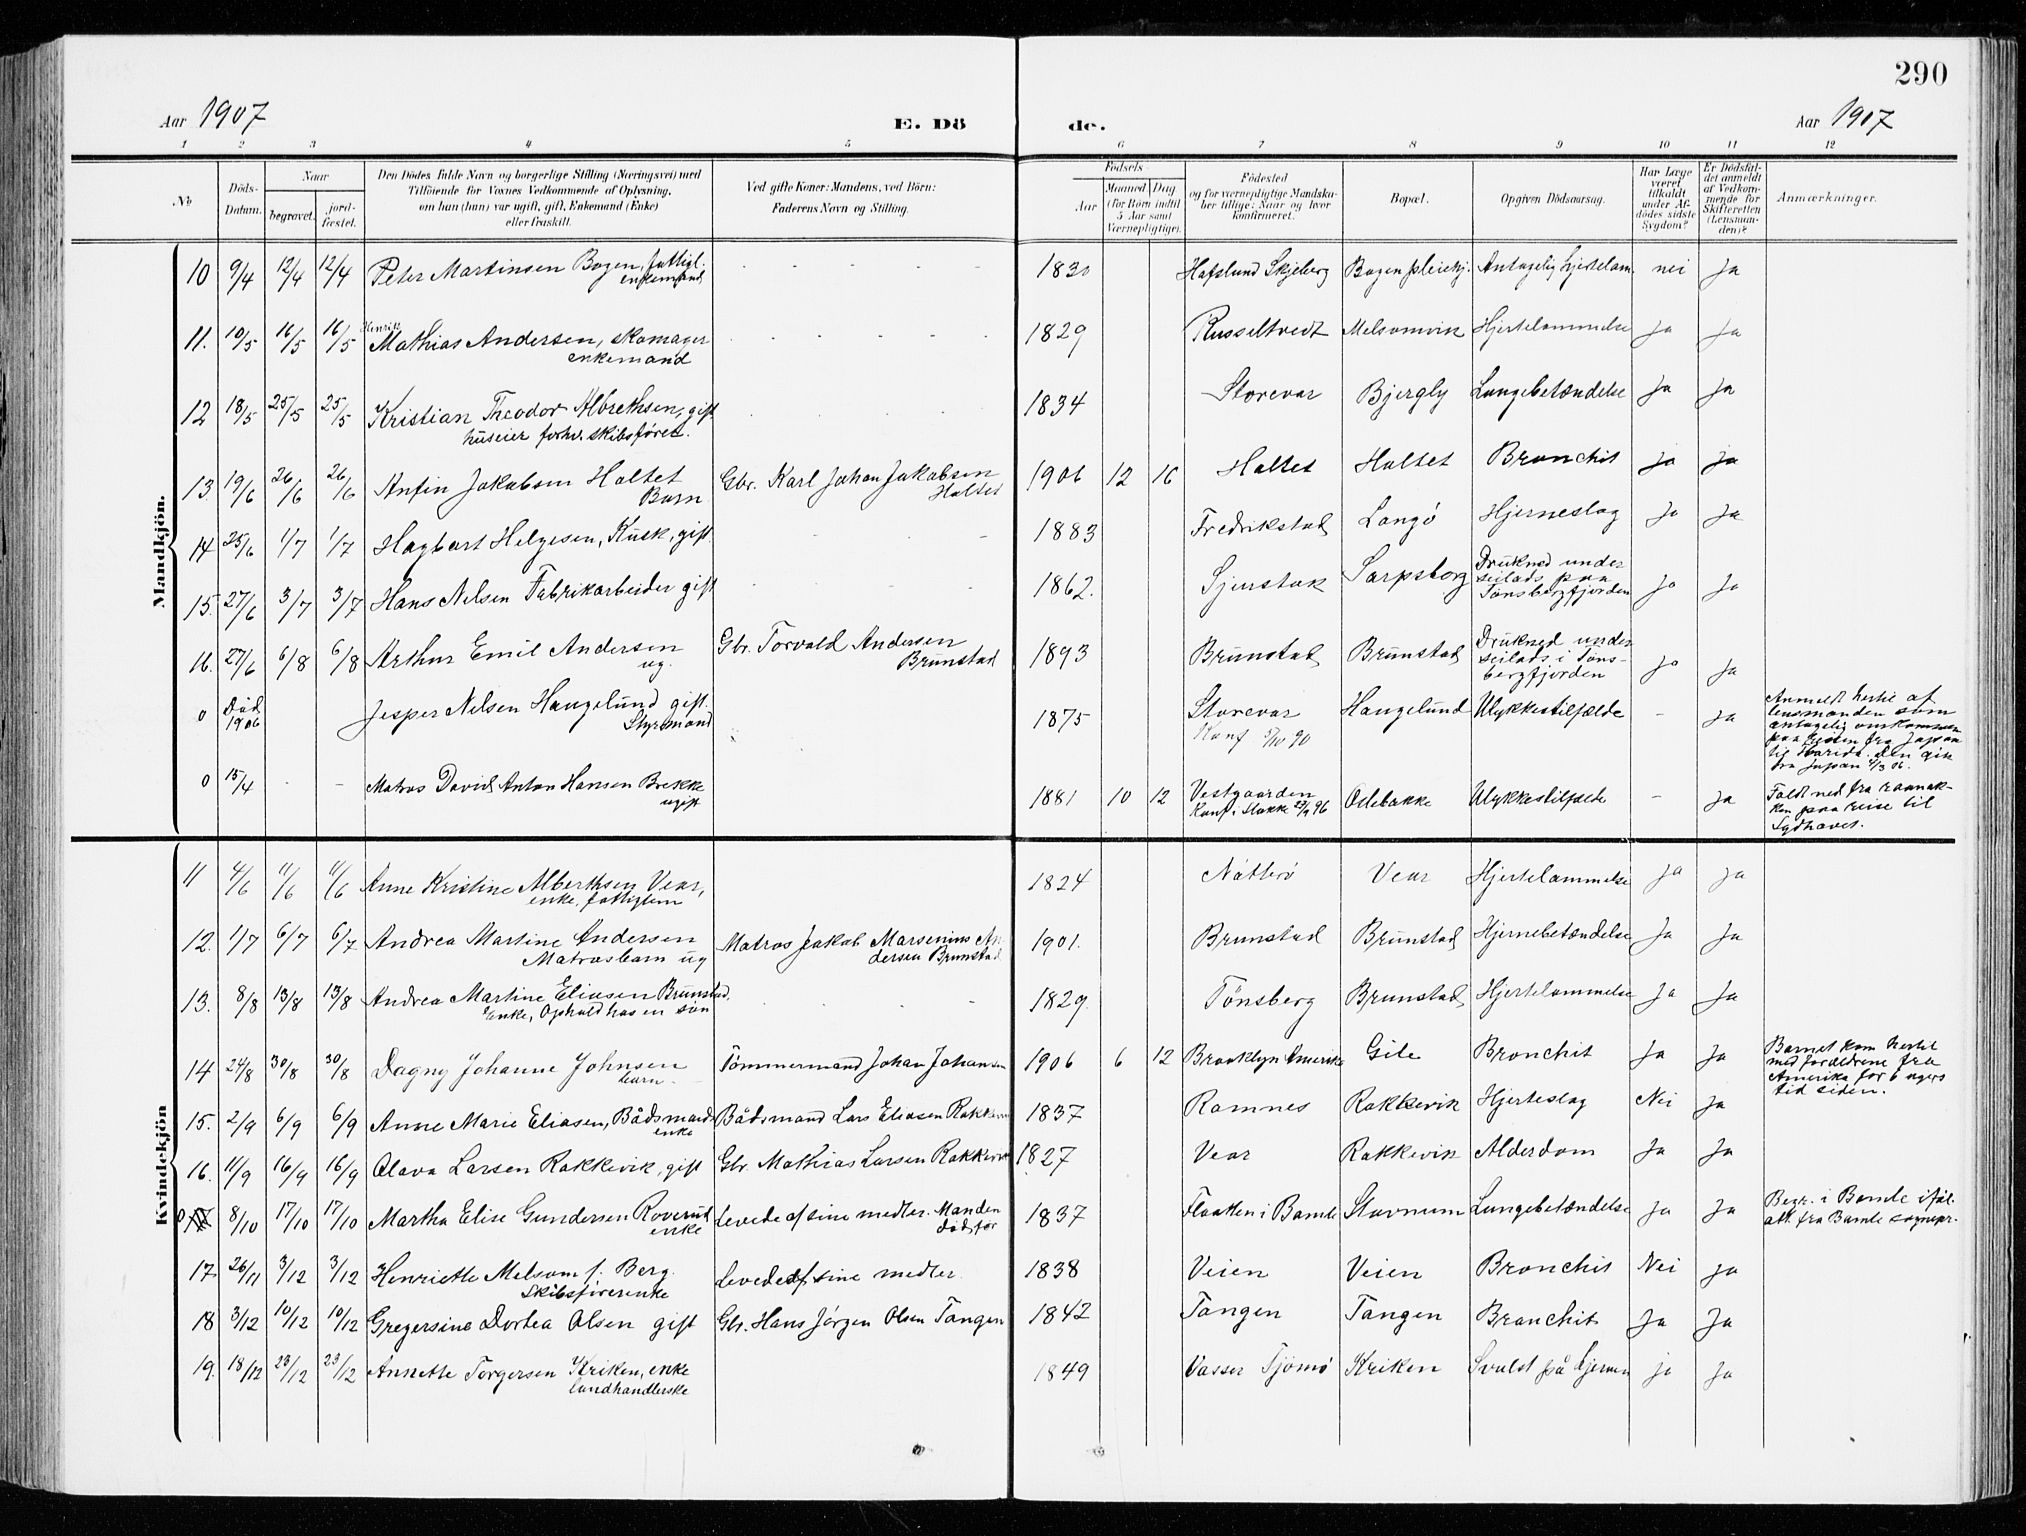 290
Aar 1907 E. Dö de. Aar 1907
1 2 3 4 5 6 7 8 9 10 11 12
No
Döds-
Datum.
Naar
begravet.
jord-
fæstet.
Den Dödes fulde Navn og borgerlige Stilling (Næringsvei) med
Tilföiende for Voxnes Vedkommende af Oplysning,
om han (hun) var ugift, gift, Enkemand (Enke)
eller fraskilt.
Ved gifte Koner: Mandens, ved Börn:
Faderens Navn og Stilling.
Födsels
Aar
Maaned Dag
(for Börn indtil
5 Aar samt
Værnepligtige).
Födested
og for værnepligtige Mandska-
ber tillige: Naar og hvor
konfirmeret.
Bopæl.
Opgiven Dödsaarsag.
Har Læge
været
tilkaldt
under Af-
dödes sidste
Sygdom?
Er Dödsfal-
det anmeldt
af Vedkom-
mende for
Skifteretten
(Lensman-
den)?
Anmærkninger.
Mandkjön.
10 9/4 12/4 12/4 Peter Martinsen Bogen, fattigl. 1830 Hafslund Skjeberg Bogen pleiehj. Antagelig hjertelam. nei Ja
enkemand
Henrik
11. 10/5 16/5 16/5 Mathias Andersen, skomager 1829 Russeltvedt Melsomvik Hjertelammelse Ja Ja
enkemand
12 18/5 25/5 25/5 Kristian Theodor Albrethsen, gift 1834 Storevar Bjergly Lungebetændelse Ja Ja
huseier forhv. skibsfører.
13. 19/6 26/6 26/6 Anfin Jakobsen Holtet Gbr. Karl Johan Jakobsen 1906 12 16 Holtet Holtet Bronchit ja ja
Barn Holtet
14 25/6 1/7 1/7 Hagbart Helgesen, Kusk, gift 1883 Fredrikstad Langö Hjerneslag Ja Ja
15. 27/6 3/7 3/7 Hans Nelsen Fabrikarbeider gift 1862. Sarpsborg Drukned under
seilads paa
Tønsbergfjorden Jo Ja
16. 27/6 6/8 6/8 Arthur Emil Andersen Gbr. Torvald Andersen 1893 Brunstad Brunstad Drukned under
ug. Brunstad seilads i Töns-
bergfjorden Jo Ja
0 Död
1906 Jesper Nilsen Haugelund gift. 1875 Storevar Haugelund Ulykkestilfælde - Ja
Styrmand Konf 5/10 90
Anmeldt hertil af
lensmanden som
antagelig omkommen
paa reisen fra Japan
til Florida. Den gik
fra Japan 4/3 06.
0 15/4 - - Matros David Anton Hansen Brekke 1881 10 12 Vestgaarden Odebakke Ulykkestilfælde - Ja
ugift Konf. i Stokke 27/9 96
Faldt ned fra raanok-
ken paa reise til
Sydhavet.
Kvindekjön
11 4/6 11/6 11/6 Anne Kristine Alberthsen Vear, 1824 Nötterö Vear Hjertelammelse Ja Ja
enke, fattiglem
12. 1/7 6/7 6/7 Andrea Martine Andersen Matros Jakob Marsenius An- 1901. Brunstad Brunstad Hjernebetændelse Ja Ja
Matrosbarn ug dersen Brunstad
13. 8/8 13/8 13/8 Andrea Martine Eliasen Brunstad, 1829. Tönsberg Brunstad Hjertelammelse Ja Ja
Enke, Ophold hos en sön
14 24/8 30/8 30/8 Dagny Johanne Johnsen Tömmermand Johan Johansen 1906 6 12 Brooklyn Amerika Gile Bronchit Ja Ja
barn
Barnet kom hertil
med forældrene fra
Amerika for 6 ugers
tid siden.
15. 2/9 6/9 6/9 Anne Marie Eliasen, Bådsmands Bådsmand Lars Eliasen Rakkevik 1837 Ramnes Rakkevik Hjerteslag Nei Ja
enke
16. 11/9 16/9 16/9 Olava Larsen Rakkevik, gift Gbr. Mathias Larsen Rakkevik 1827 Vear Rakkevik Alderdom Ja Ja
0 8/10 17/10 17/10 Martha Elise Gundersen Roverud Levede af sine midler. Manden 1837 Flaatten i Bamle Stavnum Lungebetændelse Ja Ja
enke död för
Begr. i Bamle iföl.
att. fra Bamle sognepr.
17. 26/11 3/12 3/12 Henriette Melsom f. Berg. Levede af sine midler 1838 Veien Veien Bronchit Nei Ja
Skibsförerenke
18 3/12 10/12 10/12 Gregersine Dortea Olsen gift Gbr. Hans Jörgen Olsen Tangen 1842 Tangen Tangen Bronchit Ja Ja
19. 18/12 23/12 23/12 Annette Torgersen Kriken, enke 1849 Vasser Tjömö Kriken Svulst på hjernen ja Ja
landhandlerske